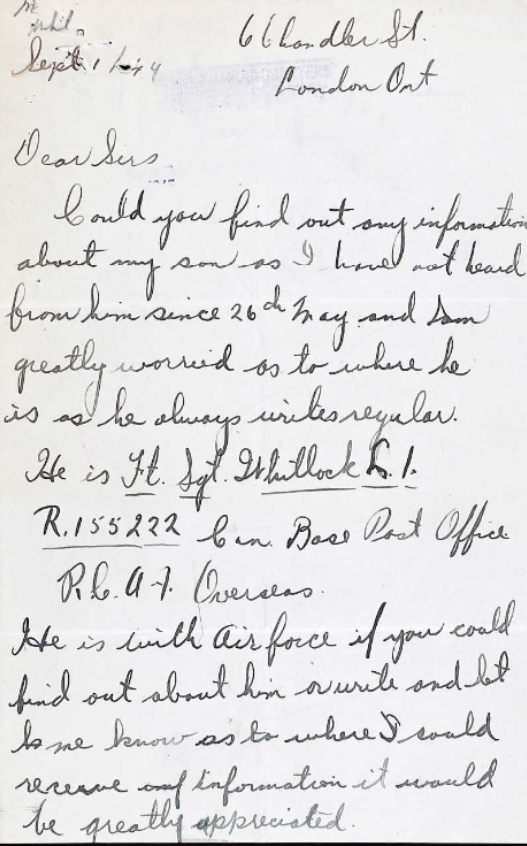 6 Chandler St.
Sept 1 / 44
London Ont
Dear Sirs
Could you find out any information
about my son as I have not heard
from him since 26th May and I am
greatly worried as to where he
is as he always writes regular.
He is Ft. Sgt. Whitlock L. I.
R.155222 Can. Base Post Office
R.C.A.F. Overseas.
He is with Air force if you could
find out about him or write and let
me know as to where I could
receive any information it would
be greatly appreciated.